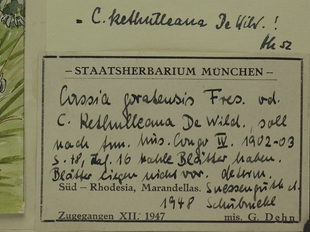 = C. Kethulleana De Wild.!
52
– STAATSHERBARIUM MÜNCHEN –
Cassia goratensis Fres. od.
C. Kethulleana De Wild., soll
nach Ann. Mus. Congo IV. 1902-03
S. 48, Taf. 16 kahle Blätter haben.
Blätter liegen nicht vor. determ.
Süd – Rhodesia, Marandellas. Suessenguth d.
1948
Zugegangen XII. 1947 mis. G. Dehn